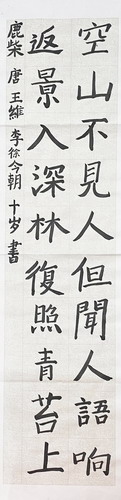 空山不見人但聞人語响
返景入深林復照青苔上
鹿柴 唐 王維 李徐今朝 十岁 書